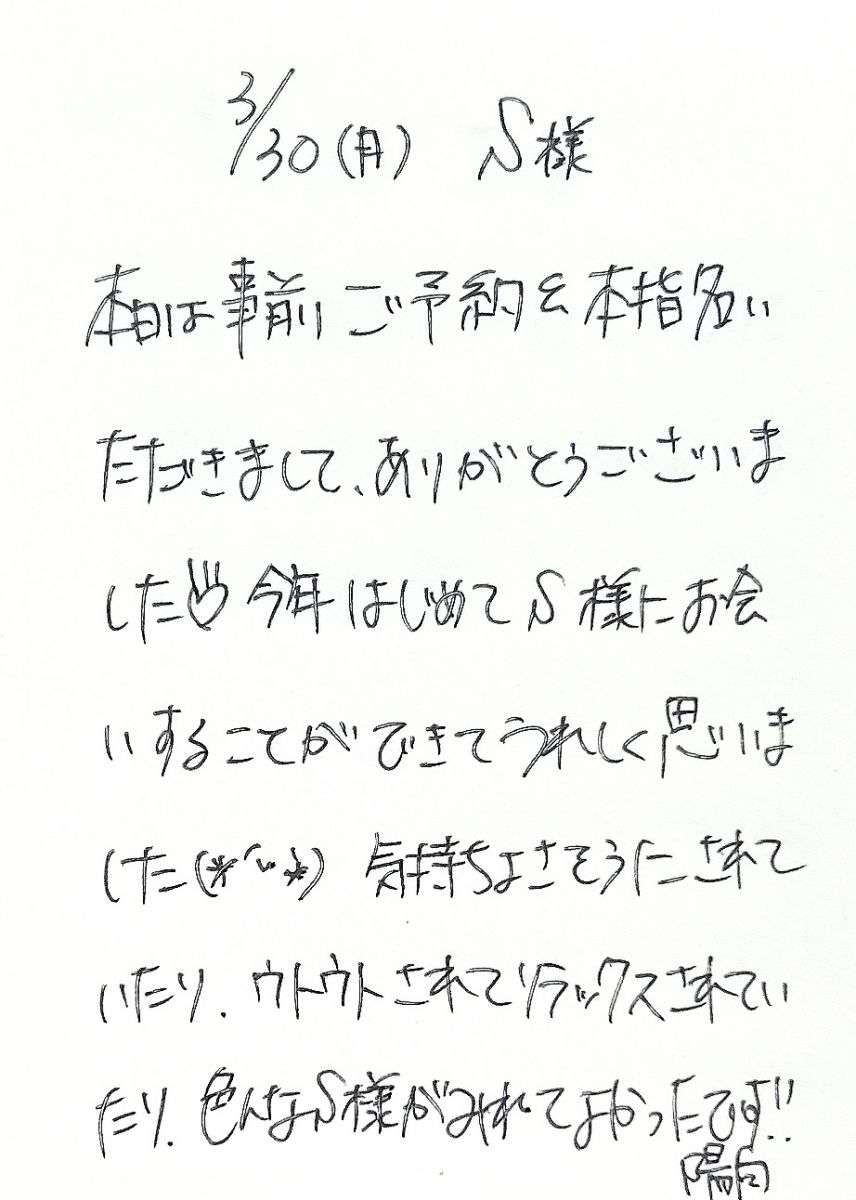 3/30(月) S様
本日は事前ご予約&本指名い
ただきまして、ありがとうございま
した♡ 今年はじめてS様にお会
いすることができてうれしく思いま
した(*´˘`*) 気持ちよさそうにされて
いたり、ウトウトされてリラックスされてい
たり、色んなS様がみれてよかったです!!
陽向